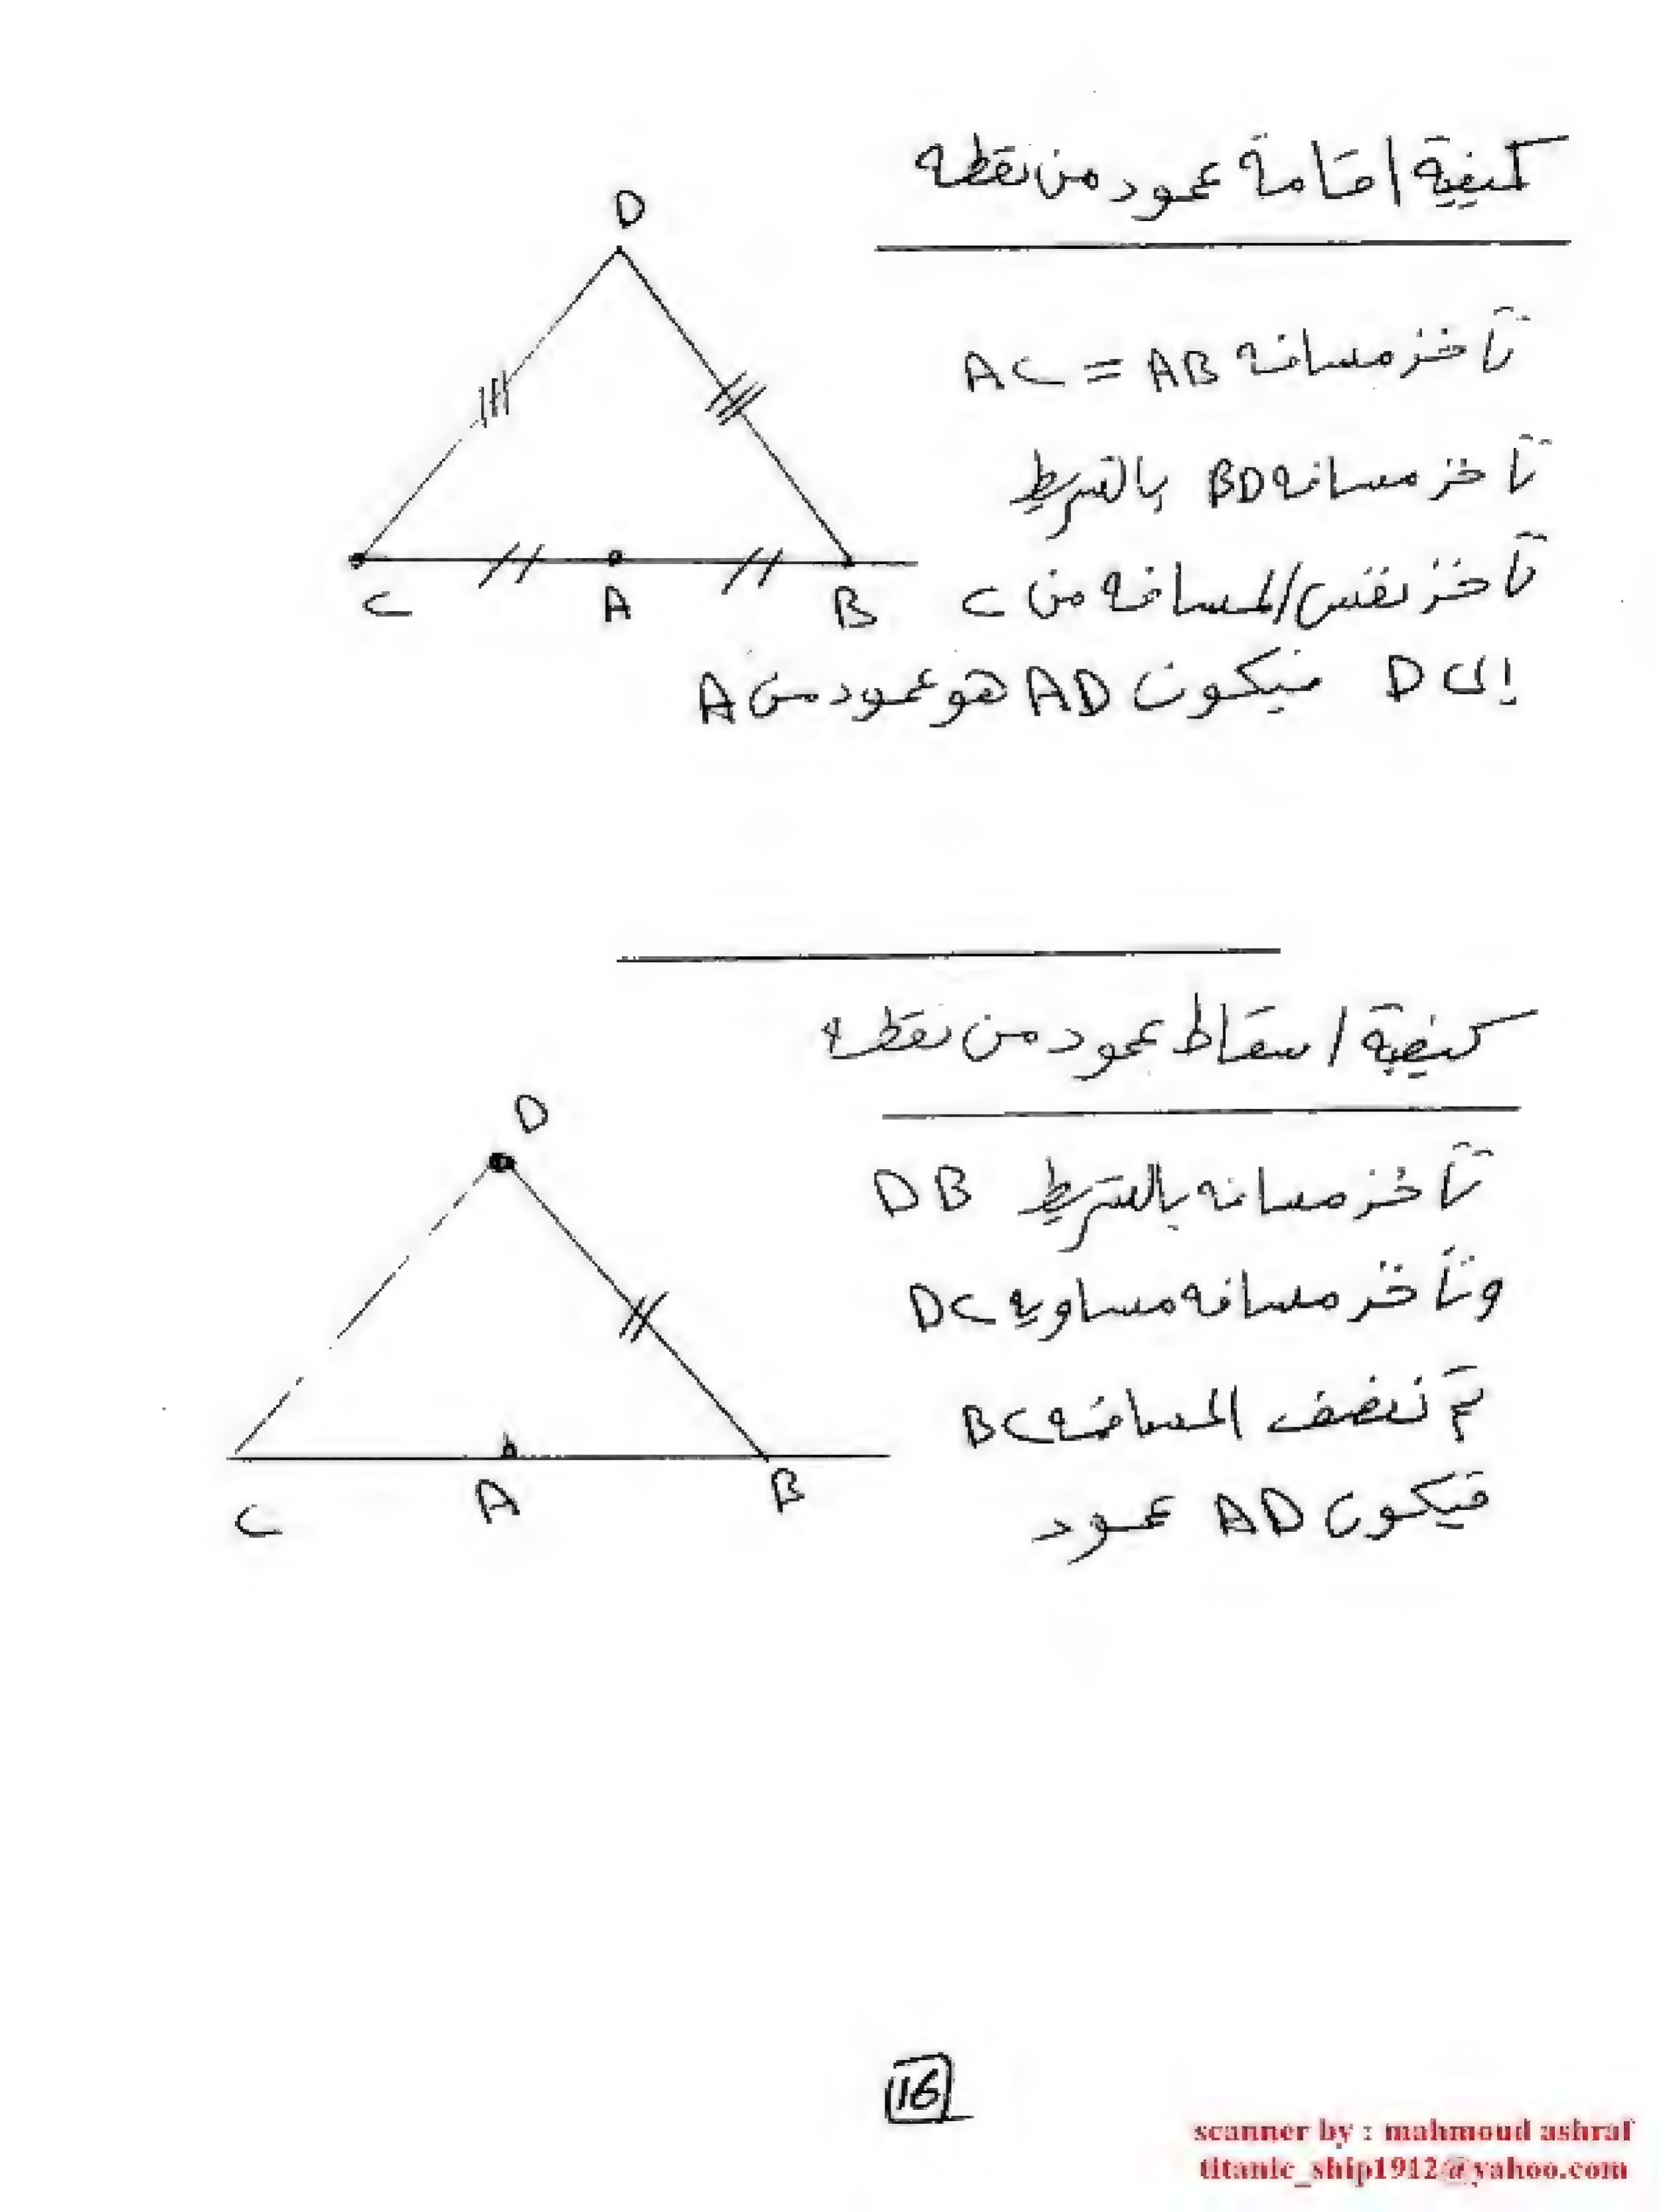 كيفية اقامة عمود من نقطه
D
تأخذ مسافه AC = AB
تأخذ مسافه BD بالشريط
تأخذ نفس المسافه من C
C A B
إلى D فيكون AD هو عمود من A
كيفية اسقاط عمود من نقطه
D
تأخذ مسافه بالشريط DB
وتأخذ مسافه مساويه DC
ثم ننصف المسافه BC
C A B
فيكون AD عمود
16
scanner by : mahmoud ashraf
titanic_ship1912@yahoo.com